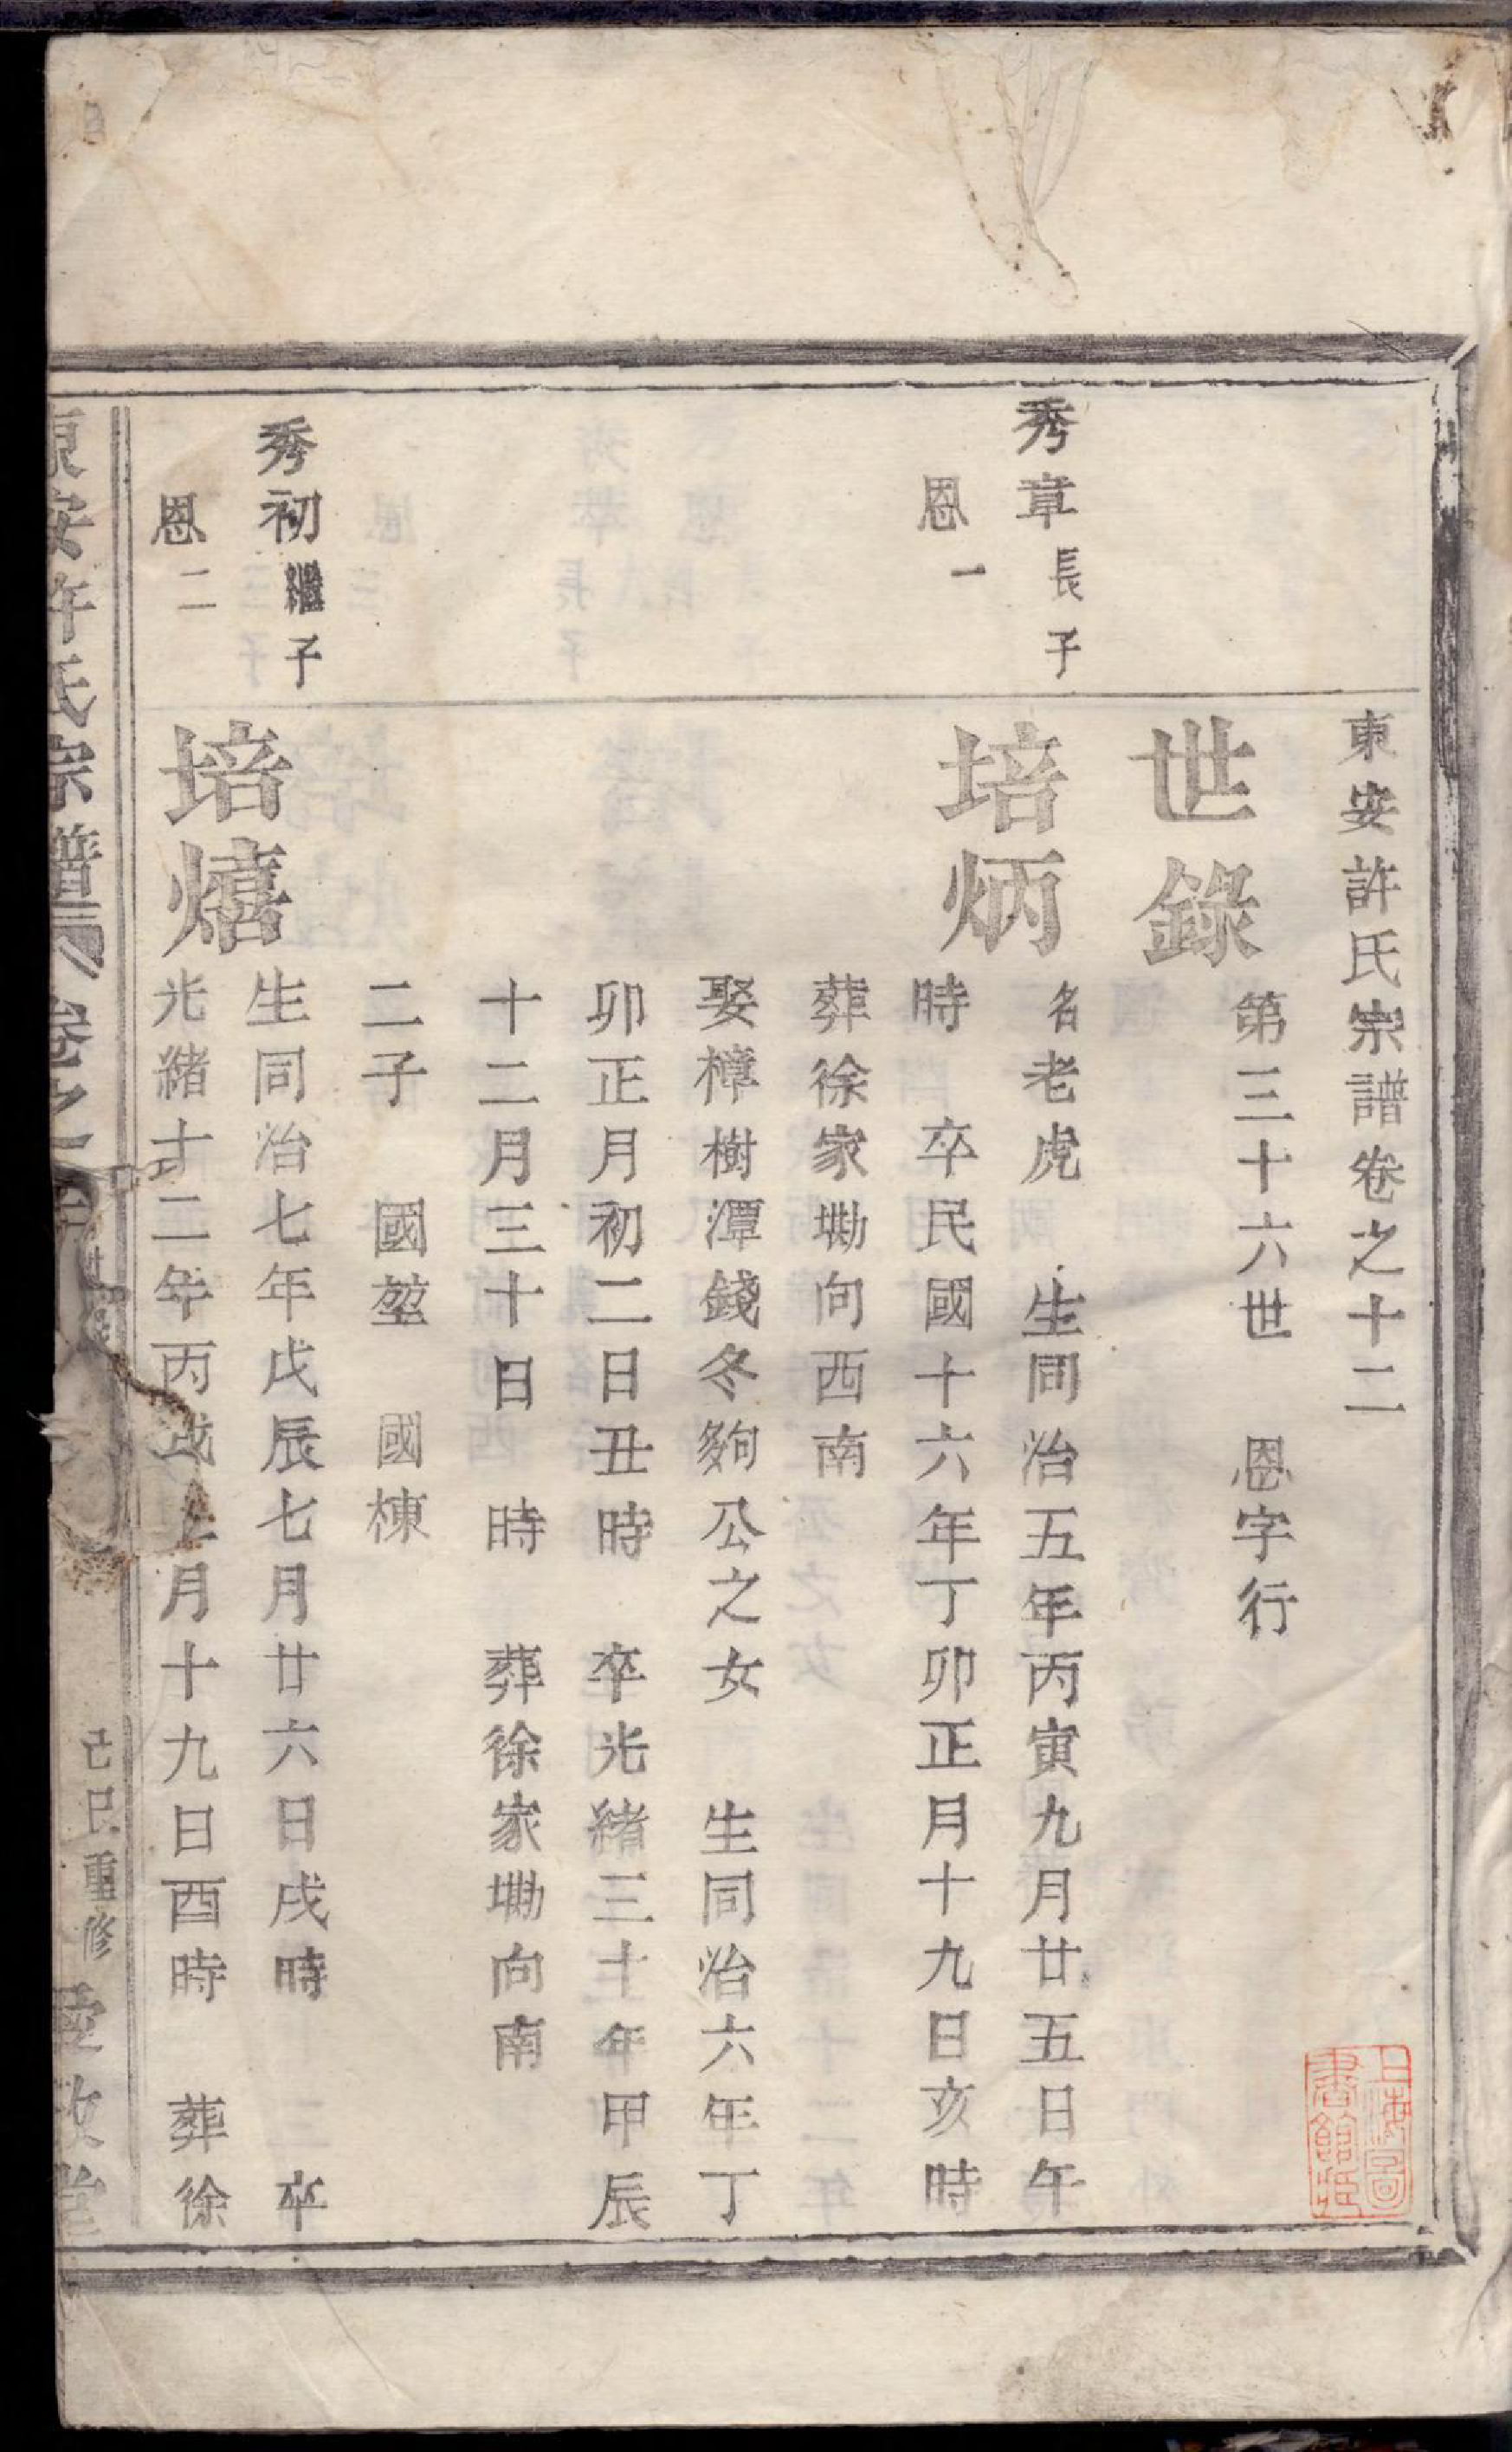 東安許氏宗譜卷之十二
世錄
第三十六世　恩字行
秀章長子
恩一
培炳
名老虎　生同治五年丙寅九月廿五日午
時　卒民國十六年丁卯正月十九日亥時
葬徐家墈向西南
娶樟樹潭錢冬夠公之女　生同治六年丁
卯正月初二日丑時　卒光緒三十年甲辰
十二月三十日　時　葬徐家墈向南
二子　國堃　國棟
秀初繼子
恩二
培熺
生同治七年戊辰七月廿六日戌時　卒
光緒十二年丙戌月十九日酉時　葬徐
東安許氏宗譜　卷之
己巳重修　愛敬堂
上海圖書館藏